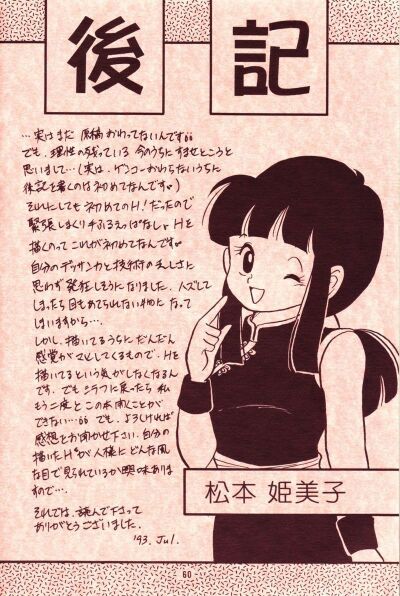 後記
…実はまだ原稿おわってないんです。。
でも、理性の残っている今のうちにすませとこうと
思いまして…(実は、ゲンコーおわらないうちに
後記を書くのは初めてなんです。)
それにしても初めてのH!だったので
緊張しまくり手ふるえっぱなし。Hを
描くのってこれが初めてなんです。
自分のデッサン力と技術の乏しさに
思わず発狂しそうになりました。ハズして
しまったら目もあてられない物になって
しまいますから…。
しかし、描いてるうちにだんだん
感覚がマヒしてくるもので、Hを
描いてるという気がしなくなるん
です。でもシラフに戻ったら私
もう二度とこの本開くことが
できない…。。でも、よろしければ
感想とお聞かせ下さい。自分の
描いたH"が人様にどんな風
な目で見られているか興味ありま
すので…。
それでは、読んで下さって
ありがとうございました。
'93. Jul.
松本 姫美子
60